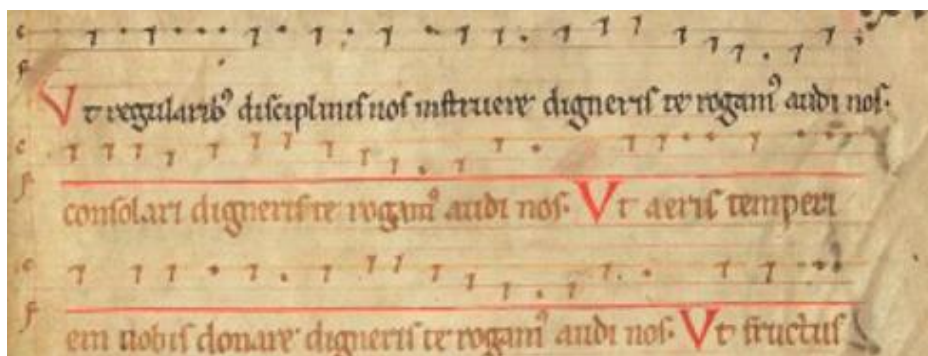 Ut regularibꝰ disciplinis nos instruere digneris te rogamꝰ audi nos.
consolari digneris te rogamꝰ audi nos. Ut aeris temperi
em nobis donare digneris te rogamꝰ audi nos. Ut fructus